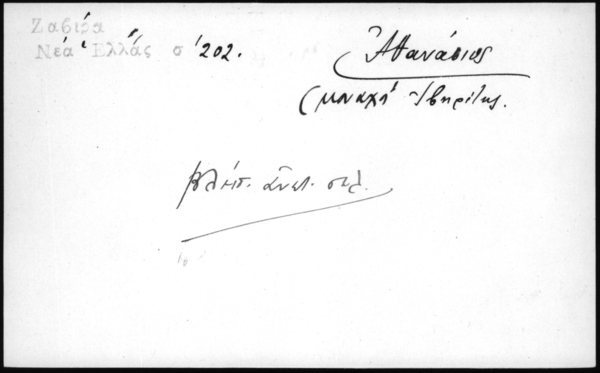 Ζαβίρα
Νέα Ἑλλάς σ 202.
Ἀθανάσιος
(μοναχὸς Ἰβηρίτης.
βλέπ. ἀνωτ. σελ.